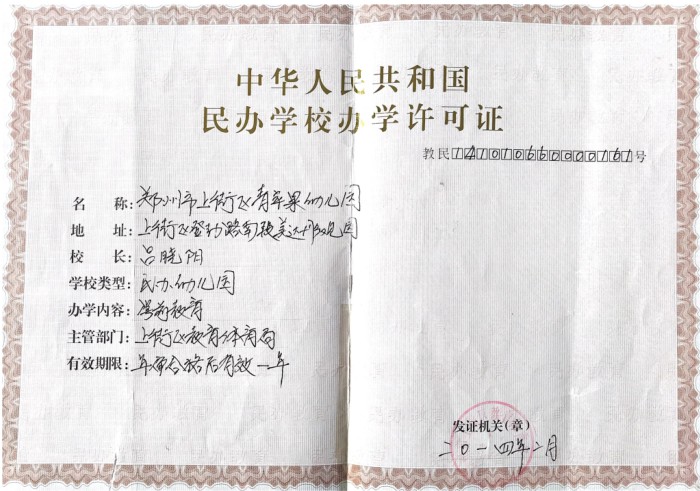 中华人民共和国
民办学校办学许可证
教民141010660000161号
名称:郑州市上街区青苹果幼儿园
地址:上街区登封路南段美达花园
校长:吕晓阳
学校类型:民办幼儿园
办学内容:学前教育
主管部门:上街区教育体育局
有效期限:年审合格后有效一年
发证机关(章)
二〇一四年二月